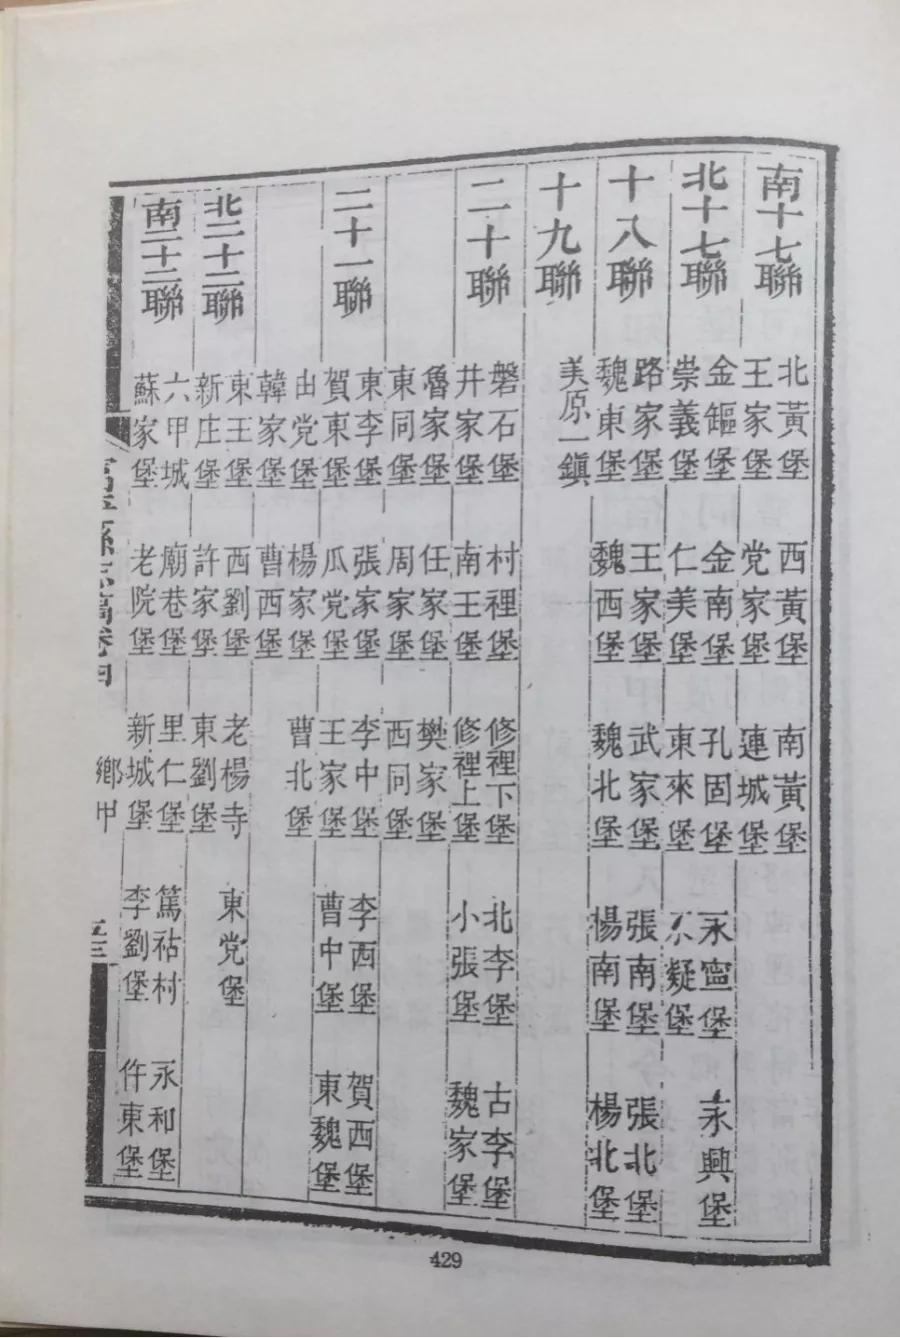 南十七聯
北黃堡 西黃堡 南黃堡
王家堡 党家堡 連城堡
北十七聯
金鏂堡 金南堡 孔固堡 永寧堡 永興堡
崇義堡 仁美堡 東來堡 不疑堡
十八聯
路家堡 王家堡 武家堡 張南堡 張北堡
魏東堡 魏西堡 魏北堡 楊南堡 楊北堡
十九聯
美原一鎮
二十聯
磐石堡 村裡堡 修裡下堡 北李堡 古李堡
井家堡 南王堡 修裡上堡 小張堡 魏家堡
魯家堡 任家堡 樊家堡
東同堡 周家堡 西同堡
二十一聯
東李堡 張家堡 李中堡 李西堡 賀西堡
賀東堡 瓜党堡 王家堡 曹中堡 東魏堡
由党堡 楊家堡 曹北堡
韓家堡 曹西堡
北二十二聯
東王堡 西劉堡 老楊寺 東党堡
新庄堡 許家堡 東劉堡
南二十二聯
六甲城 廟巷堡 里仁堡 篤祜村 永和堡
蘇家堡 老院堡 新城堡 李劉堡 仵東堡
富平縣志稿卷四 鄉甲 五三
429